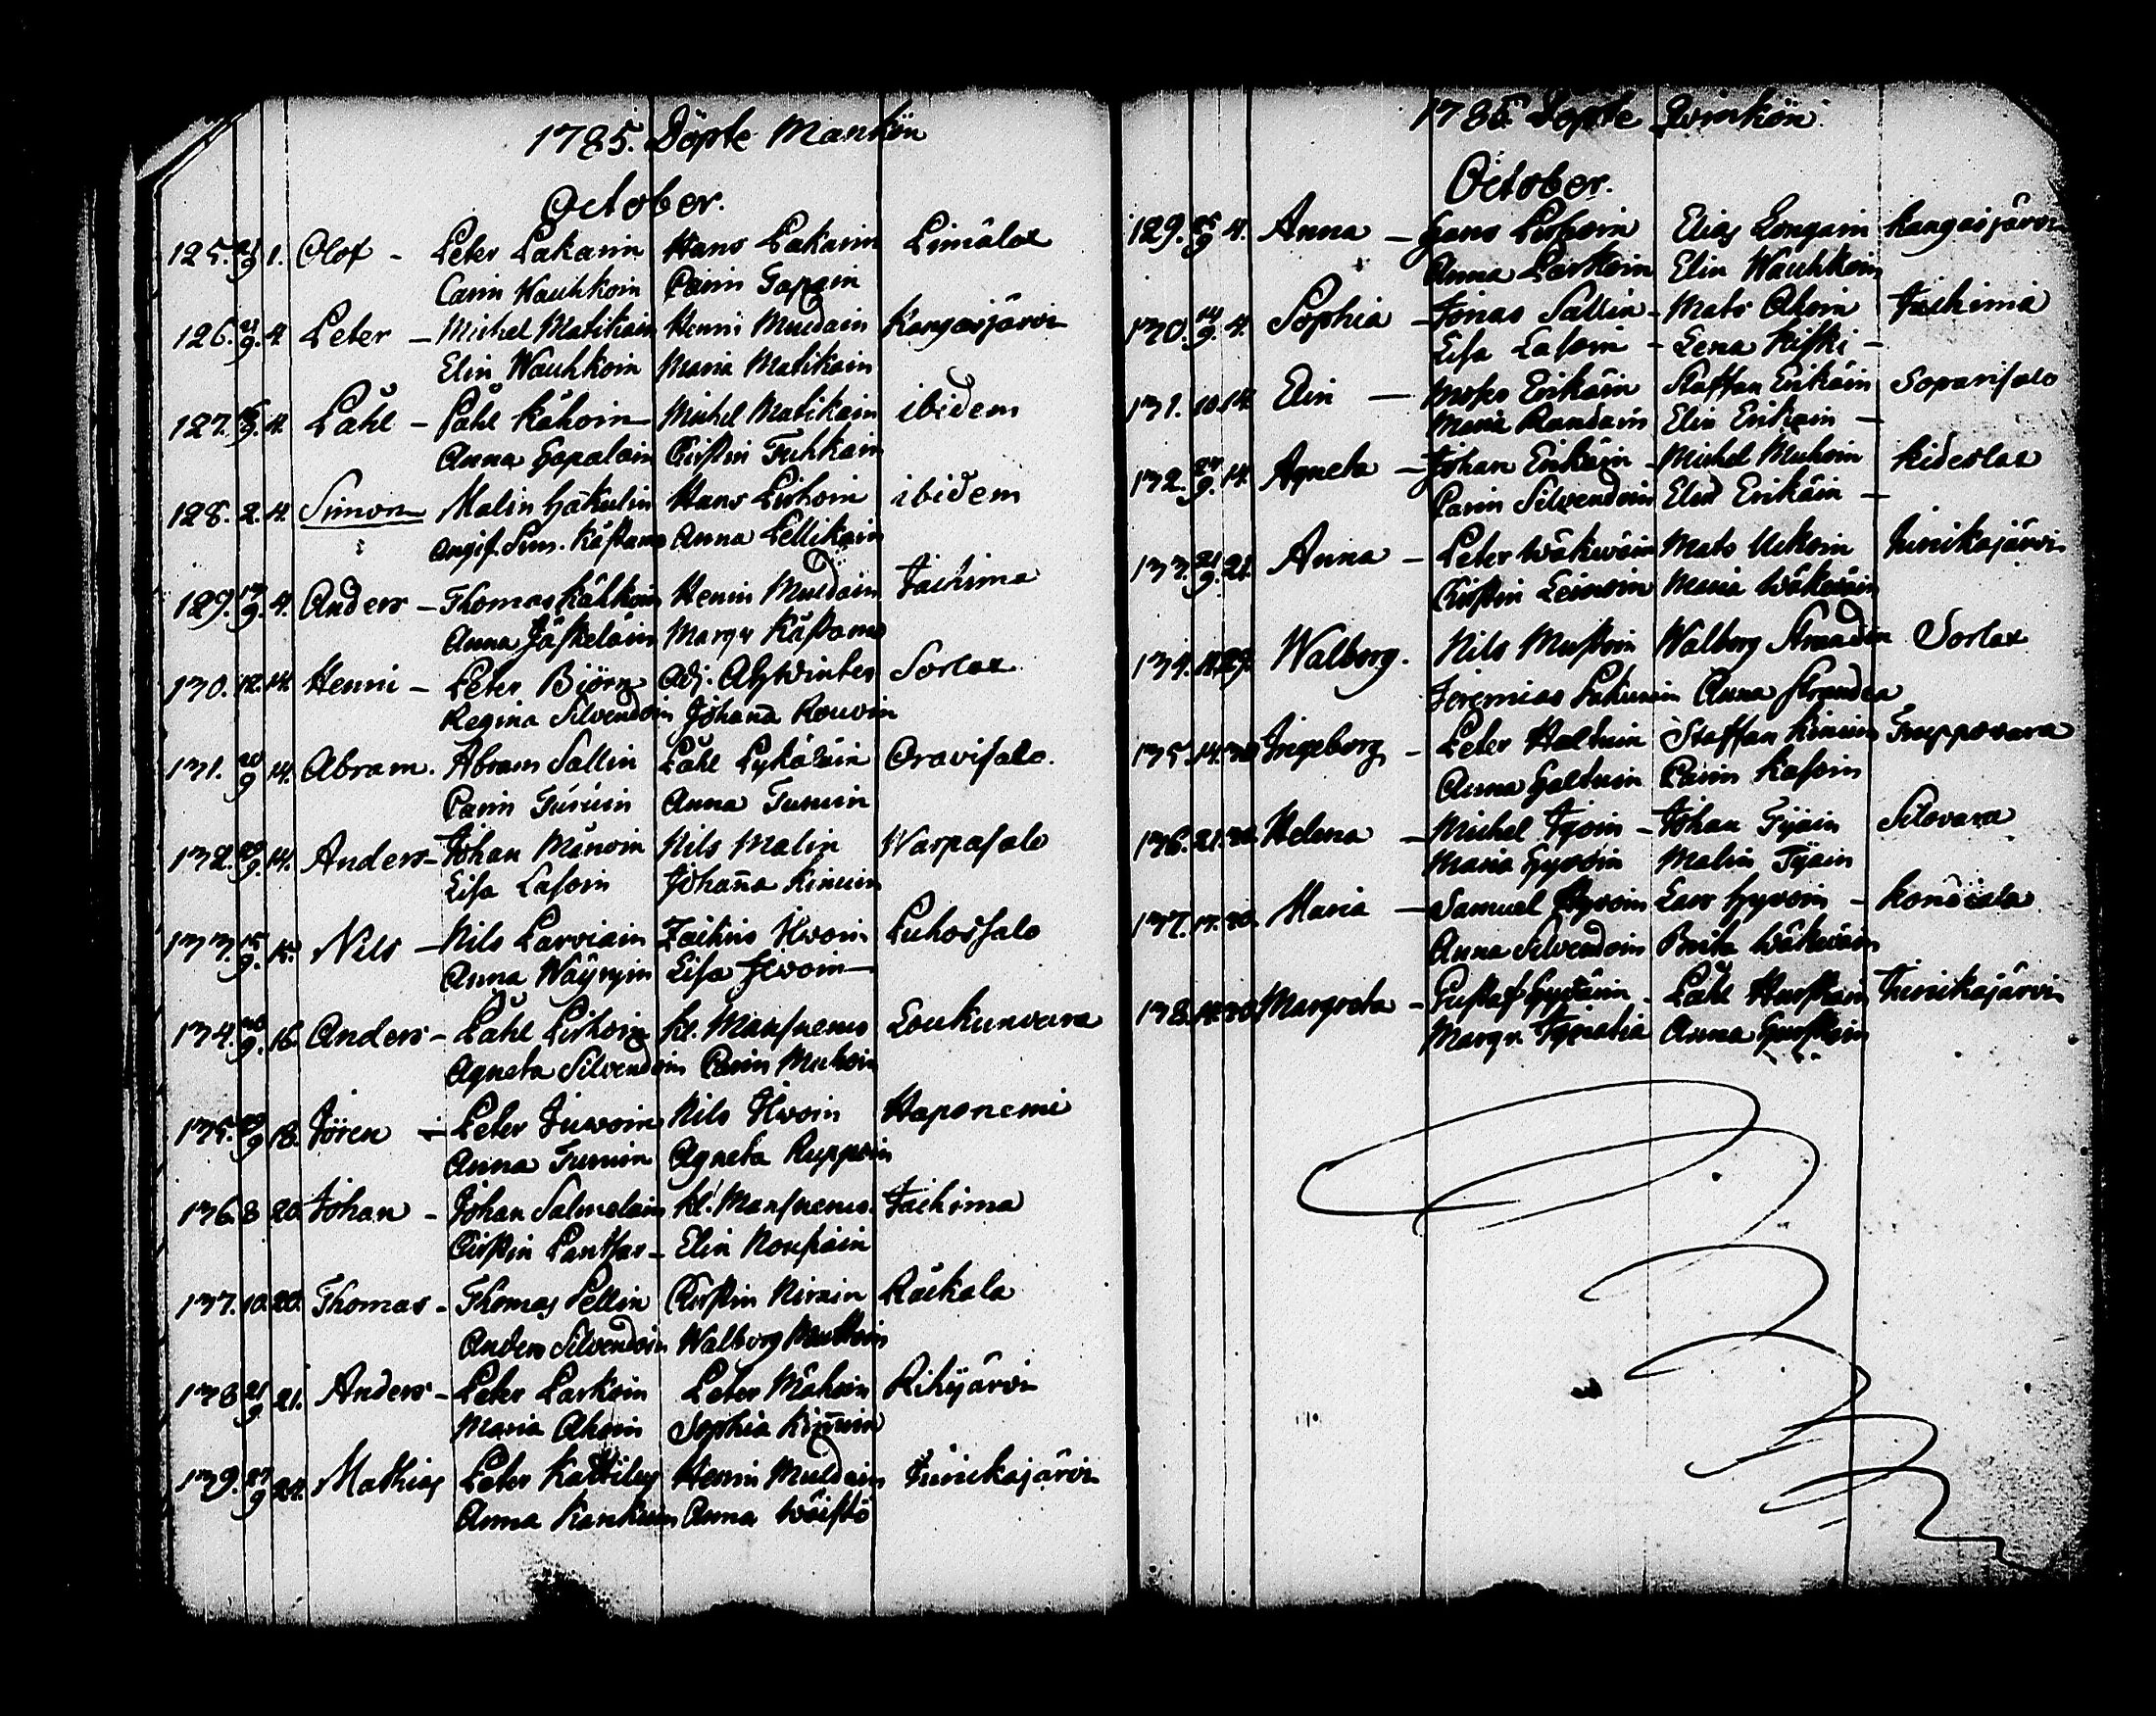 1785. Döpte Mankön
October.
125. 21/9 1. Olof - Peter Pakarin Hans Pakarin Limälax
Carin Wauhkoin Carin Tapain
126. 21/9. 4. Peter - Michel Matikain Henri Muldain Kangasjärvi
Elin Wauhkoin Maria Matikain
127. 9. 4. Påhl - Påhl Kähoin Michel Matikain ibidem
Anna Hapalain Cirstin Tuhkain
128. 2. 4. Simon Malin Häkulin Hans Pirhoin ibidem
Angif. Sim. Anna Pellikain
129. 17/9. 4. Anders - Thomas Kähkoin Henri Muldain Jaehima
Anna Jäskeläin Margr
130. 12. 14. Henri - Peter Biörn Adj. Ahlwinter Sorlax
Regina Silvendoin Johana Rouvin
131. 20/9 14. Abram. Abram Sallin Påhl Oravisalo.
Carin Turuin Anna Turuin
132. 29/9. 14. Anders - Johan Mänoin Nils Malin Warpasalo
Lisa Lasoin Johana Kinuin
133. 15/9. 15. Nils - Nils Parviain Zachris Ikoin Puhossalo
Anna Wäyryin Lisa
134. 30/9. 16. Anders - Påhl Pirhoin kl. Mansnerus Loukunvara
Agneta Silvendoin Carin Muhoin
135. 29/9 18. Jören - Peter Juwoin Nils Haponemi
Anna Turuin Agneta Ruppoin
136. 8 20. Johan - Johan Salmelain kl. Mansnerus. Jaehima
Cirstin Panttar - Elin Nousiain
137. 10. 20. Thomas - Thomas Pellin Cirstin Nirain Räikala
Anders Silvendoin Walborg Mustoin
138 21/9 21. Anders - Peter Parkoin Peter Mähoin Rihijärvi
Maria Ahoin Sophia Kinuin
139. 27/9 24. Mathias Peter Kattilus Henrin Muldain Juurikajärvi
Anna Kankuin Anna Wäistö
1785 Döpte Qvinkön
October.
129. 25/9 4. Anna - Hans Pirhoin Elias Kangasjärvi
Anna Parkoin Elin Wauhkoin
130. 14/9. 4. Sophia - Jonas Sallin - Mats Ahoin Jaehima
Lisa Lasoin - Lena Kiski -
131. 10. 14. Elin - Moses Erikäin Staffan Erikäin Sopansalo
Maria Raudain Elin Erikäin -
132. 27/9. 14. Agneta - Johan Erikäin - Michel Muhoin Kideslax
Carin Silvendoin Elin Erikäin -
133. 21/9. 21. Anna - Peter Wäkeväin Mats Ukoin Juurikajärvi
Cirstin Leinoin Maria Wäkeväin
134. 29. Walborg. Nils Mustoin Walborg Strandin Sorlax
Jeremias Pakurin Anna Strandea
135. 14. 30 Ingeborg - Peter Haltuin Staffan Kinuin Truppovara
Anna Haltuin Carin Kasoin
136. 21. 30. Helena - Michel - Johan Tyäin Silovara
Maria Hyvoin Malin Tyäin
137. 17. 30. Maria - Samuel Hyvoin Lars Hyvoin - Konäiala
Anna Silvendoin Brita Wäkeväin
138. 14. 30 Margreta - Gustaf - Påhl Hurskain Juurikajärvi
Margr. Anna Hurskain